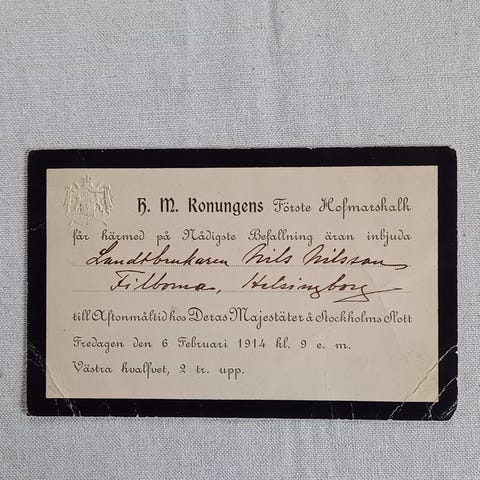 H. M. Konungens Förste Hofmarskalk
får härmed på Nådigste Befallning äran inbjuda
Landtbrukaren Nils Nilsson
Filborna, Helsingborg
till Aftonmåltid hos Deras Majestäter å Stockholms Slott
Fredagen den 6 Februari 1914 kl. 9 e. m.
Västra hvalfvet, 2 tr. upp.